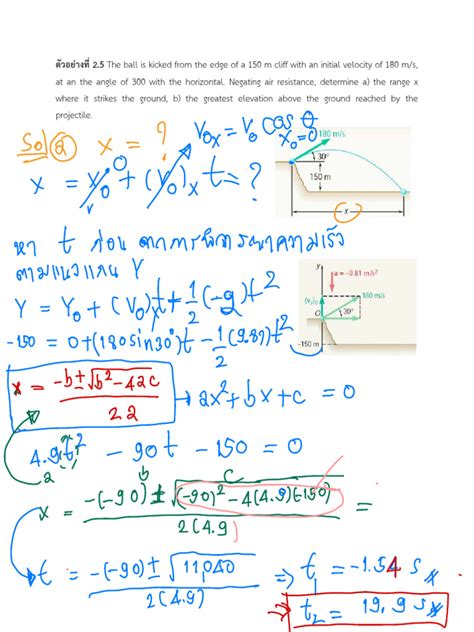 ตัวอย่างที่ 2.5 The ball is kicked from the edge of a 150 m cliff with an initial velocity of 180 m/s,
at an the angle of 300 with the horizontal. Negating air resistance, determine a) the range x
where it strikes the ground, b) the greatest elevation above the ground reached by the
projectile.
Sol a x = ?
V₀x = V₀ cos θ
x₀=0
180 m/s
30°
150 m
x
x = x₀ + (V₀)x t = ?
0
หา t ก่อน จากการพิจารณาความเร็ว
ตามแนวแกน Y
y
a = −9.81 m/s²
(vy)₀
180 m/s
30°
O
−150 m
Y = Y₀ + (V₀) t + 1/2 (-g)t²
-150 = 0+(180sin30°)t - 1/2 (9.81)t²
x = -b±√b²-4ac / 2a
→ ax²+bx+c = 0
4.9t² - 90t - 150 = 0
a b c
x = -(-90) ± √(-90)²-4(4.9)(-150) / 2(4.9) =
t = -(-90) ± √11040 / 2(4.9) ⇒ t₁ = -1.54 s
⇒ t₂ = 19.9 s